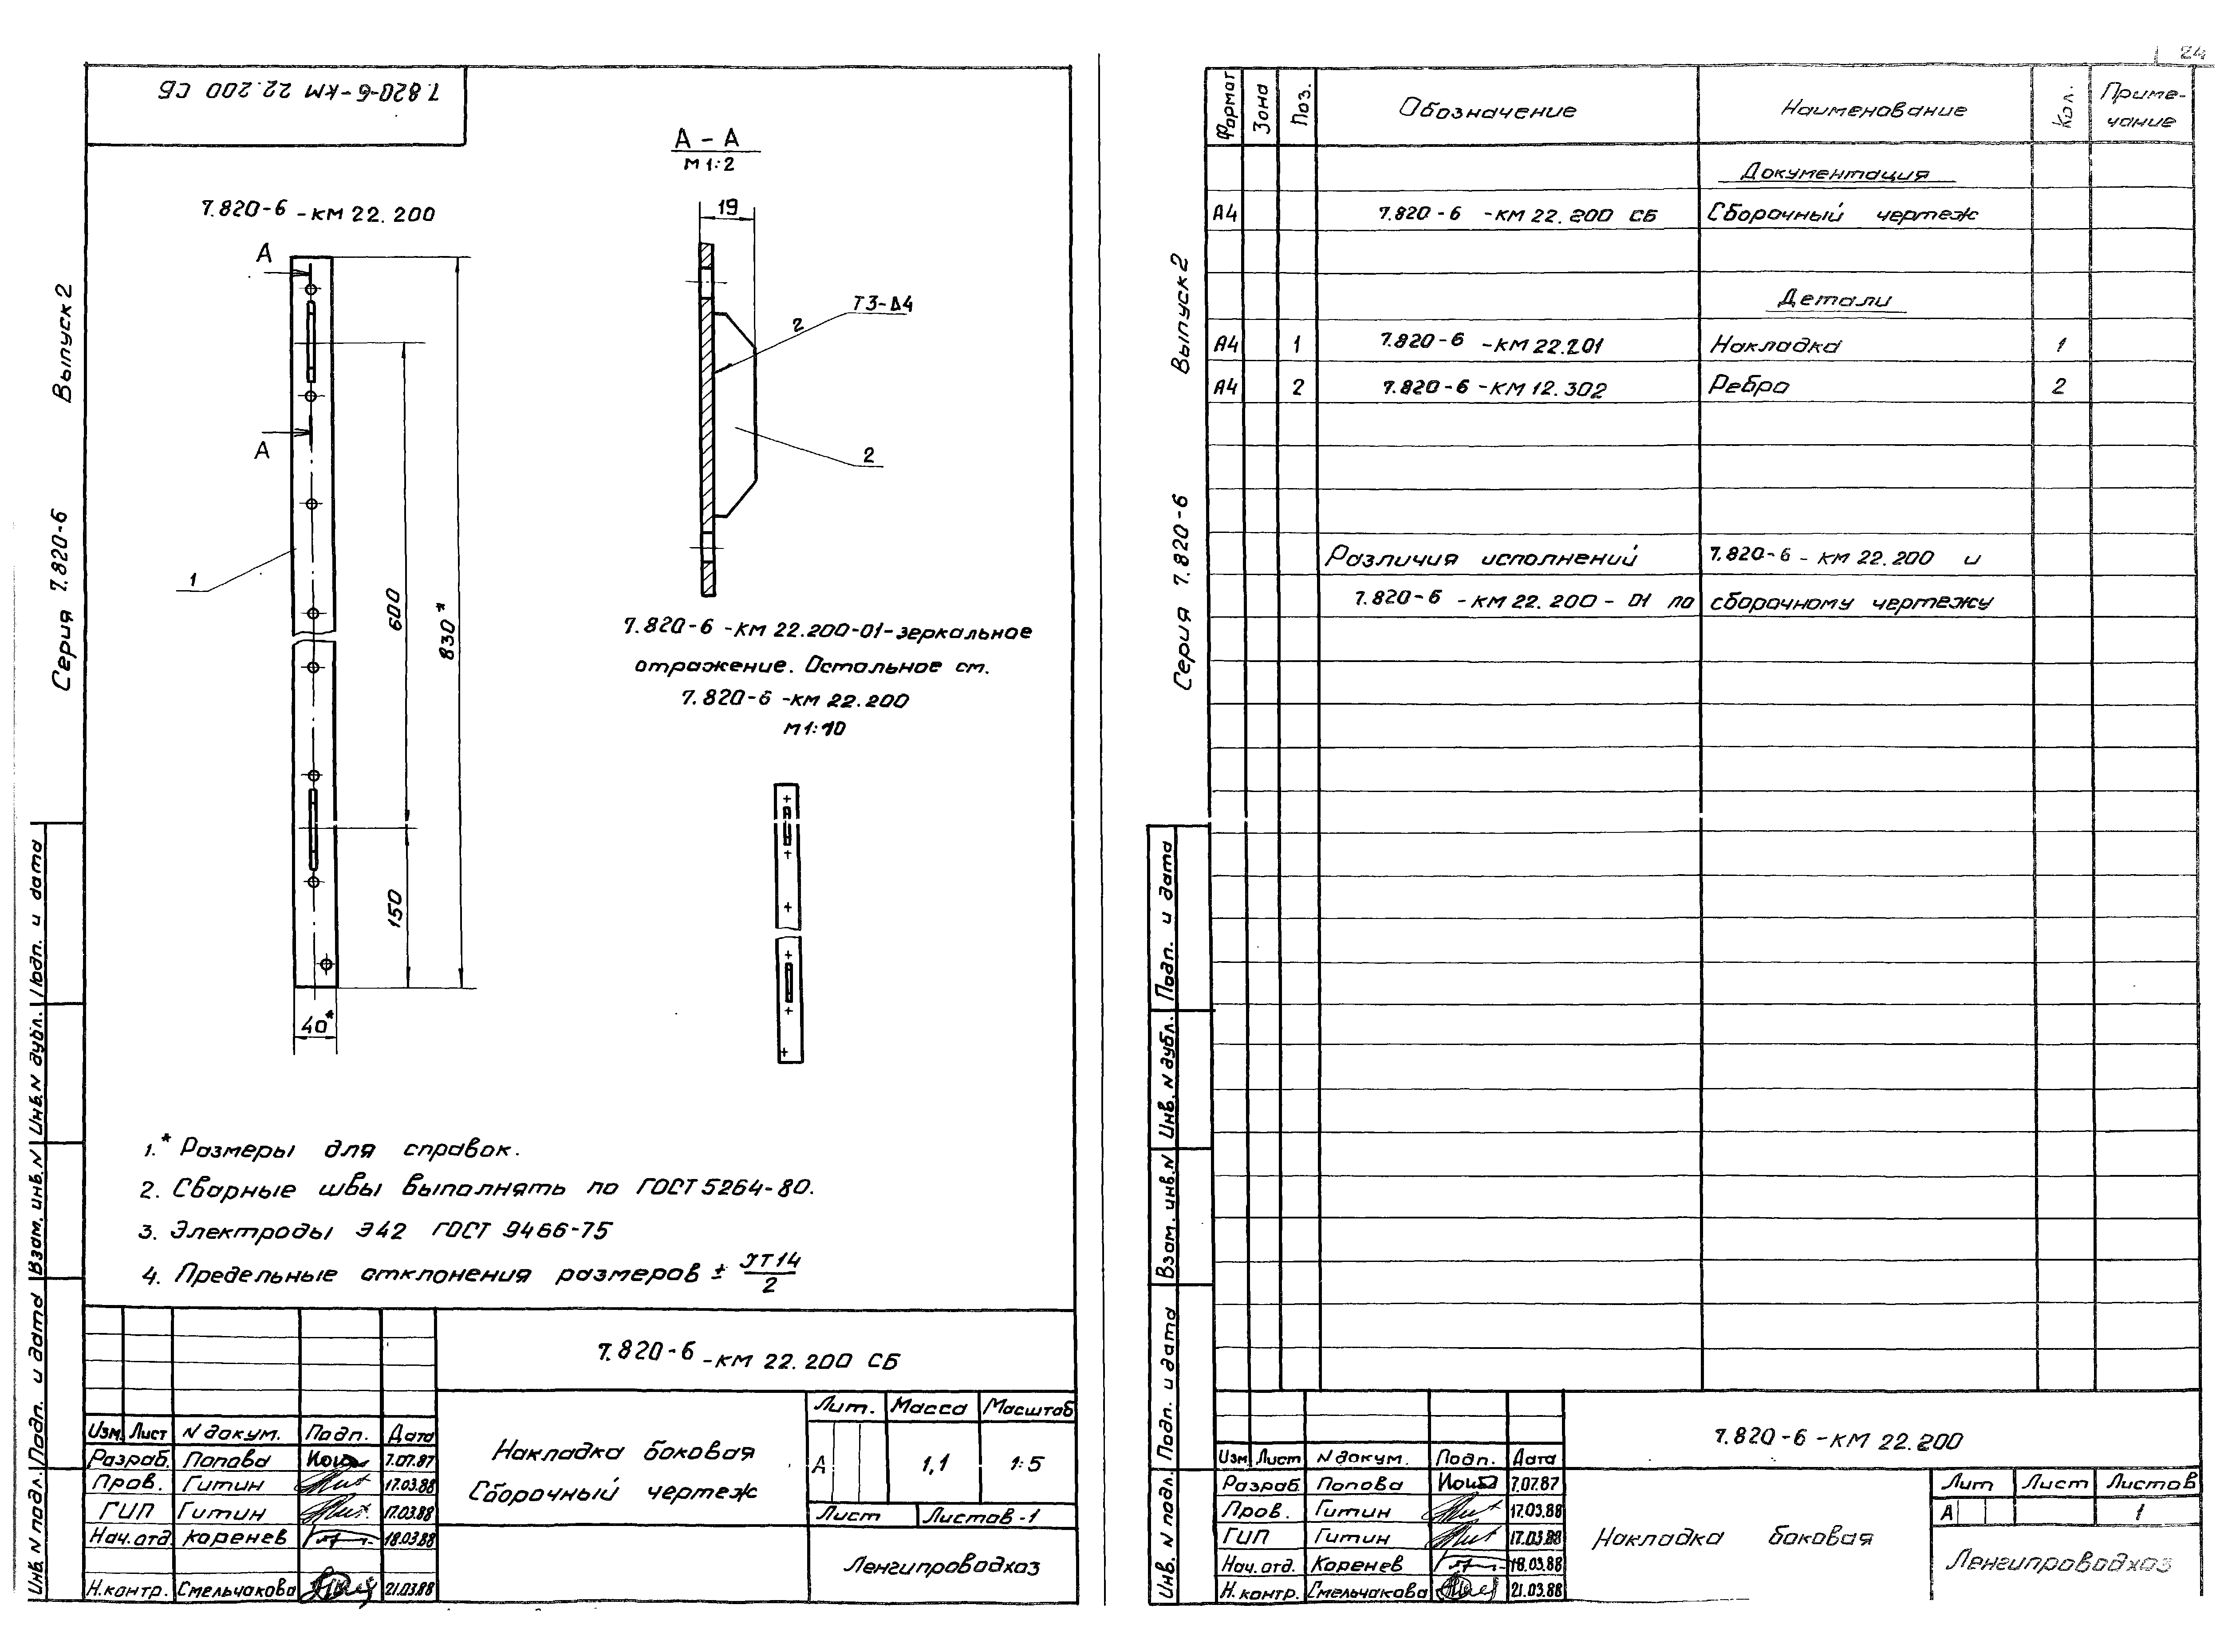 7.820-6-КМ 22.200 СБ
А – А
М 1:2
7.820-6 -КМ 22.200
19
А
Т3-Δ4
2
А
2
1
600
830*
150
40*
7.820-6 -КМ 22.200-01-зеркальное
отражение. Остальное см.
7.820-6 -КМ 22.200
М 1:10
1.* Размеры для справок.
2. Сварные швы выполнять по ГОСТ 5264-80.
3. Электроды Э42 ГОСТ 9466-75
4. Предельные отклонения размеров ± JT14/2
Серия 7.820-6 Выпуск 2
Инв. N подл. Подп. и дата Взам. инв. N Инв. N дубл. Подп. и дата
7.820-6 -КМ 22.200 СБ
Изм. Лист N докум. Подп. Дата
Разраб. Попова 7.07.87
Пров. Гитин 17.03.88
ГИП Гитин 17.03.88
Нач.отд. Коренев 18.03.88
Н.контр. Смельчакова 21.03.88
Накладка боковая
Сборочный чертеж
Лит. Масса Масштаб
А 1,1 1:5
Лист Листов -1
Ленгипроводхоз
24
Формат Зона Поз. Обозначение Наименование Кол. Приме-
чание
Документация
А4 7.820-6 -КМ 22.200 СБ Сборочный чертеж
Детали
А4 1 7.820-6 -КМ 22.201 Накладка 1
А4 2 7.820-6 -КМ 12.302 Ребро 2
Различия исполнений 7.820-6 - КМ 22.200 и
7.820-6 - КМ 22.200 - 01 по сборочному чертежу
Серия 7.820-6 Выпуск 2
Инв. N подл. Подп. и дата Взам. инв. N Инв. N дубл. Подп. и дата
7.820-6 -КМ 22.200
Изм Лист N докум. Подп. Дата
Разраб. Попова 7.07.87
Пров. Гитин 17.03.88
ГИП Гитин 17.03.88
Нач.отд. Коренев 18.03.88
Н.контр. Смельчакова 21.03.88
Накладка боковая
Лит Лист Листов
А 1
Ленгипроводхоз